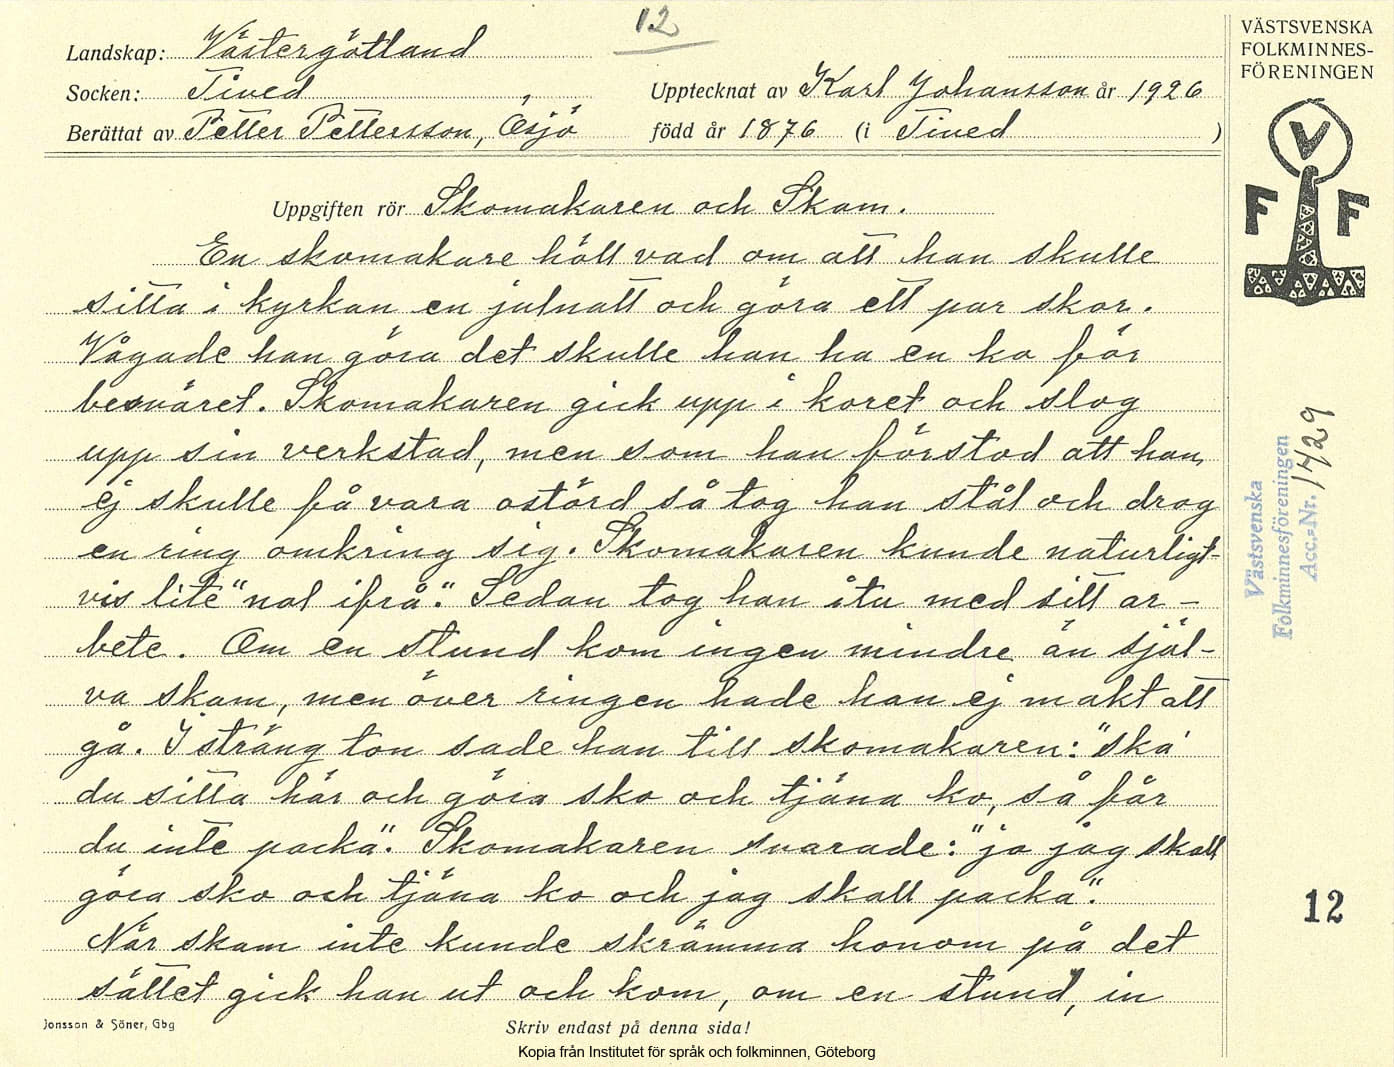 12
Landskap: Västergötland
Socken: Tived
Upptecknat av Karl Johansson år 1926
Berättat av Petter Pettersson, Ösjö
född år 1876 (i Tived )
Uppgiften rör Skomakaren och Skam.
En skomakare höll vad om att han skulle
sitta i kyrkan en julnatt och göra ett par skor.
Vågade han göra det skulle han ha en ko för
besväret. Skomakaren gick upp i koret och slog
upp sin verkstad, men som han förstod att han
ej skulle få vara ostörd så tog han stål och drog
en ring omkring sig. Skomakaren kunde naturligt-
vis lite "nol ifrå". Sedan tog han itu med sitt ar-
bete. Om en stund kom ingen mindre än själ-
va skam, men över ringen hade han ej makt att
gå. I sträng ton sade han till skomakaren: "ska'
du sitta här och göra sko och tjäna ko, så får
du inte packa". Skomakaren svarade: "jo jag skall
göra sko och tjäna ko och jag skall packa".
När skam inte kunde skrämma honom på det
sättet gick han ut och kom, om en stund, in
Jonsson & Söner, Gbg
Skriv endast på denna sida!
Kopia från Institutet för språk och folkminnen, Göteborg
VÄSTSVENSKA
FOLKMINNES-
FÖRENINGEN
V
F F
Västsvenska
Folkminnesföreningen
Acc.-Nr. 1429
12